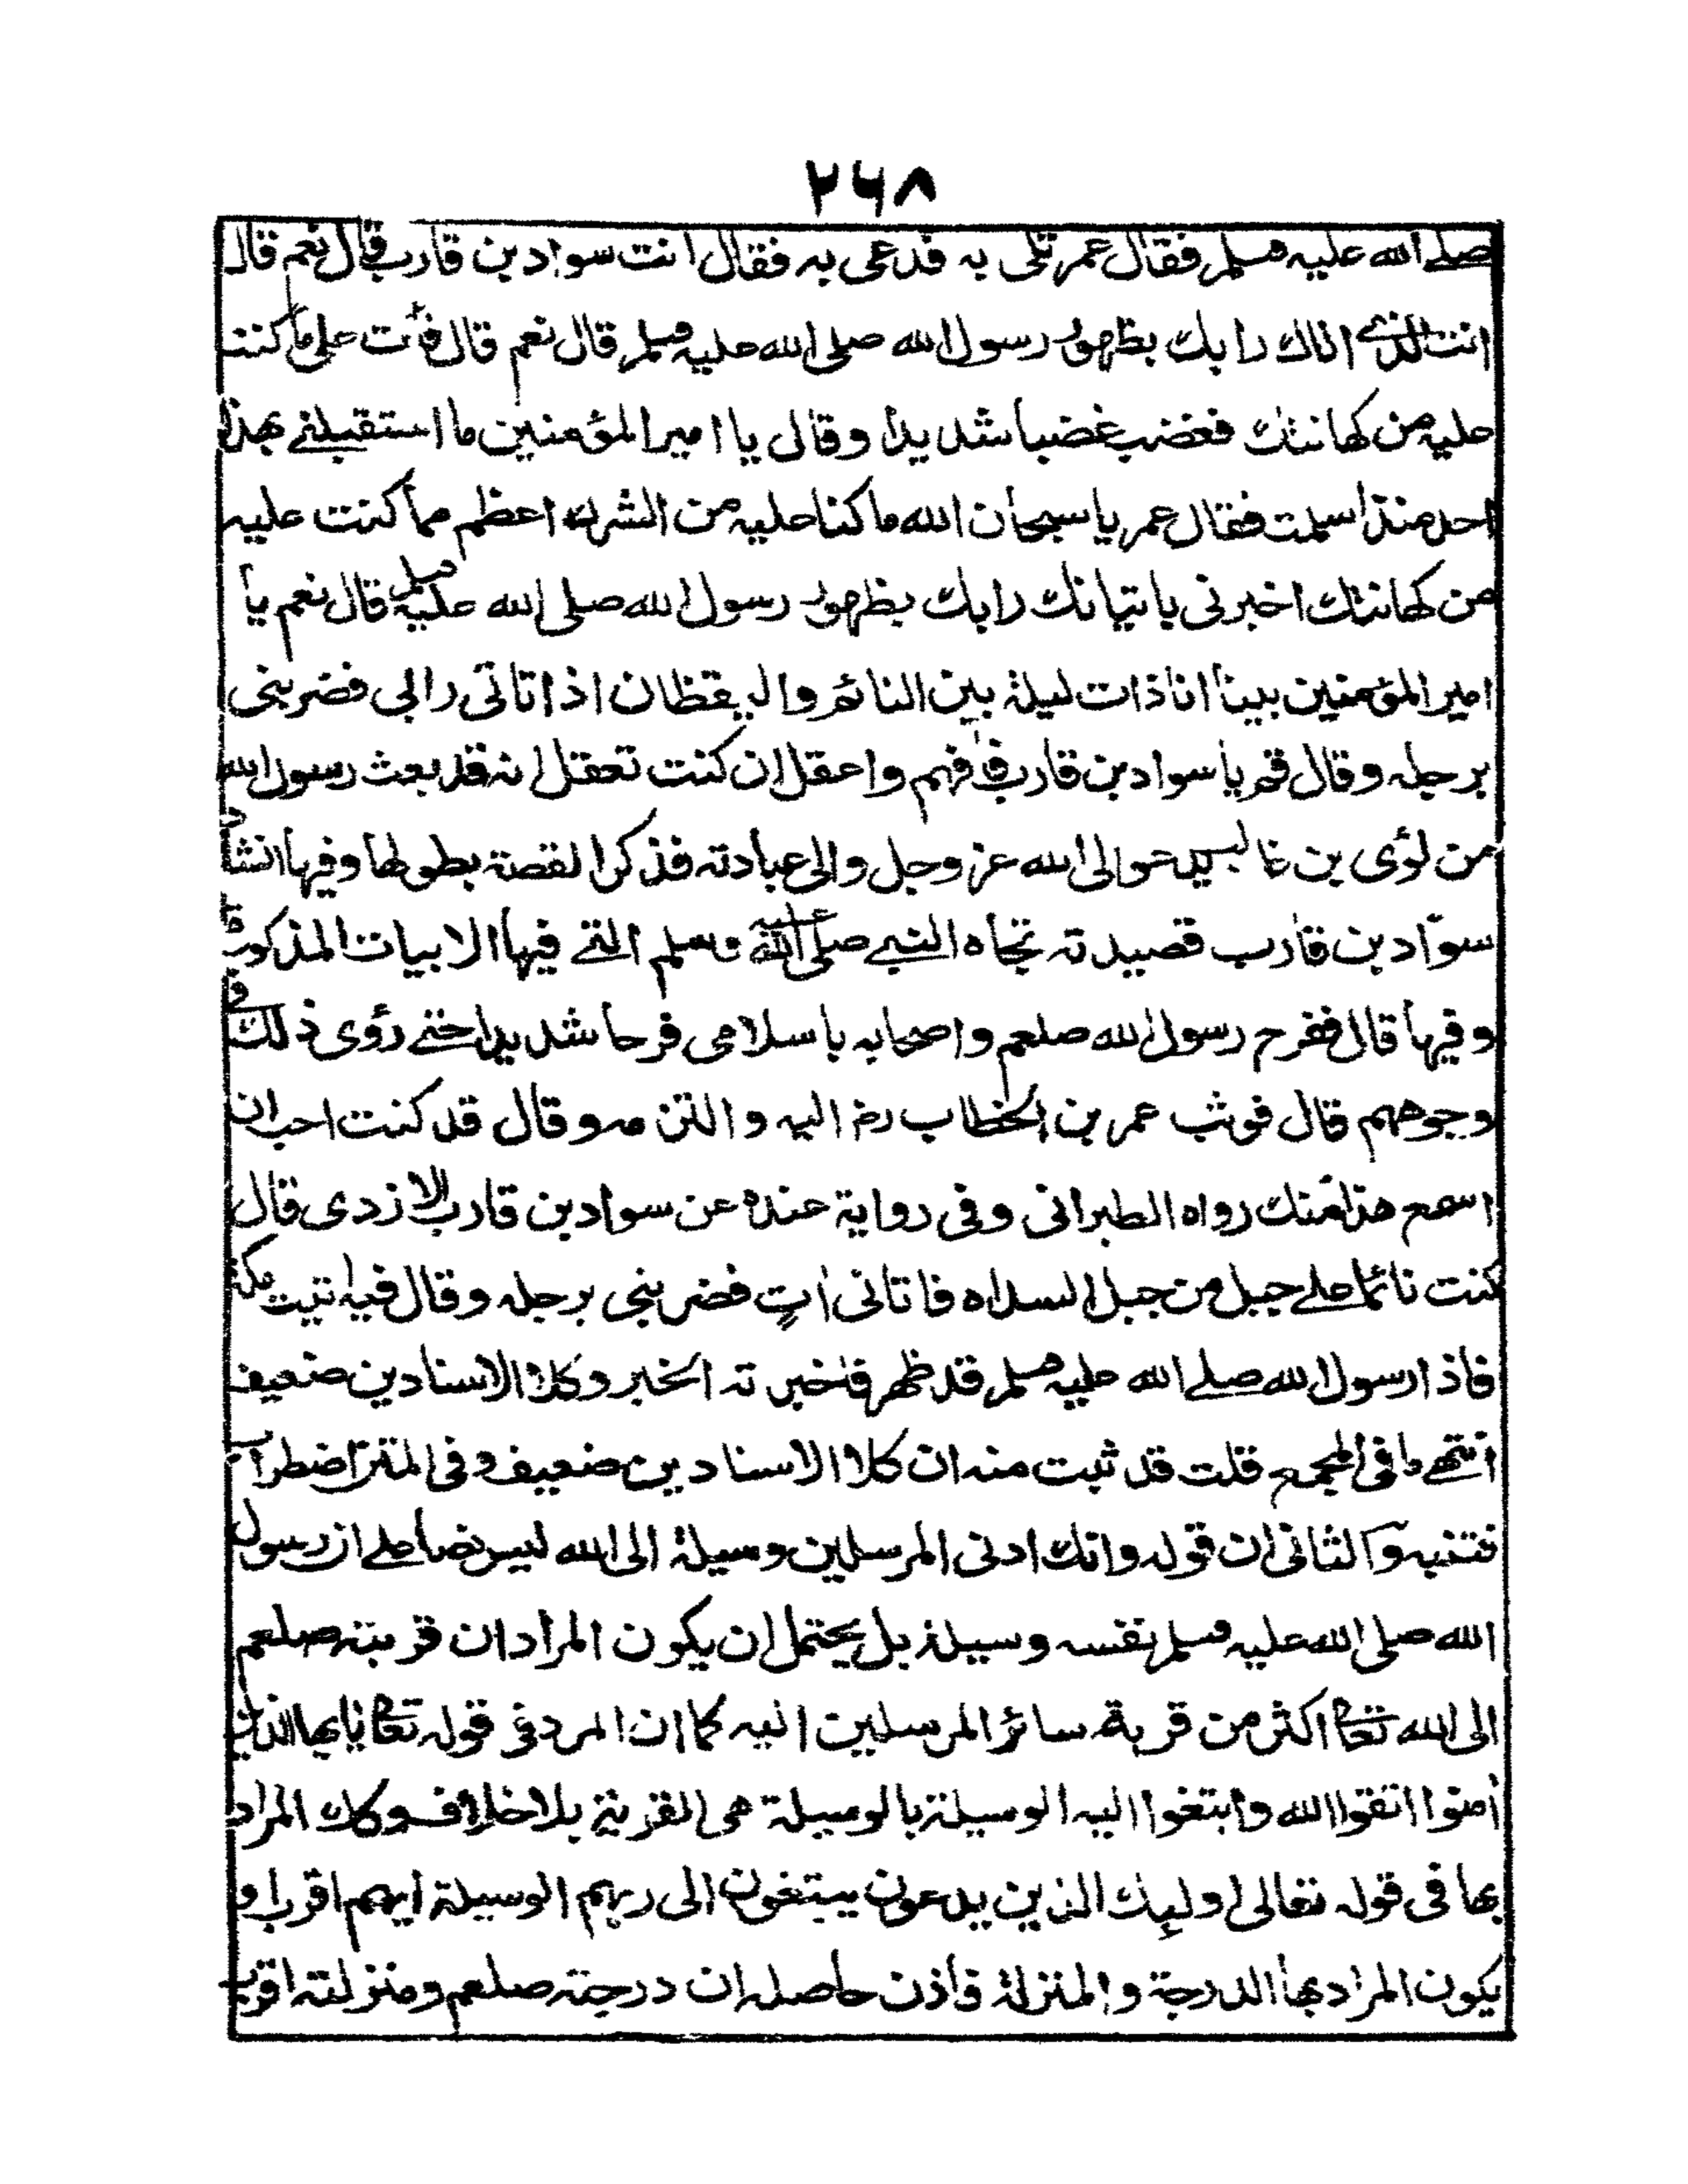 ۲۶۸
صلے الله علیہ وسلم فقال عمر علی به فدعی به فقال انت سواد بن قارب قال نعم قال
انت الذی اتاك رایك بظهور رسول الله صلی الله علیہ وسلم قال نعم قال فانت علی ما کنت
علیہ من کهانتك فغضب غضبا شدیدا وقال یا امیر المؤمنین ما استقبلنے بهذا
احد منذ اسلمت فقال عمر یا سبحان الله ما کنا علیہ من الشرك اعظم مما کنت علیہ
من کهانتك اخبرنی باتیانك رایك بظهور رسول الله صلی الله علیہ وسلم قال نعم یا
امیر المؤمنین بینا انا ذات لیلة بین النائم والیقظان اذ اتانی رائی فضربنی
برجلہ وقال قم یا سواد بن قارب فافهم واعقل ان کنت تعقل انہ قد بعث رسول الله
من لؤی بن غالب یدعو الی الله عز وجل والی عبادتہ فذکر القصة بطولها وفیها انشاد
سواد بن قارب قصیدتہ تجاہ النبے صلی الله علیہ وسلم التے فیها الابیات المذکورة
وفیها قال ففرح رسول الله صلعم واصحابہ باسلامی فرحا شدیدا حتے رؤی ذلك فی
وجوههم قال فوثب عمر بن الخطاب رض الیہ والتزمہ وقال قد کنت احب ان
اسمع هذا منك رواہ الطبرانی وفی روایة عندہ عن سواد بن قارب الازدی قال
کنت نائما علے جبل من جبل السراہ فاتانی اٰتٍ فضربنی برجلہ وقال فیہ اتیت مکة
فاذا رسول الله صلے الله علیہ وسلم قد ظهر فاخبرتہ الخبر وکلا الاسنادین ضعیف
انتهے ما فی المجمع قلت قد ثبت منہ ان کلا الاسنادین ضعیف وفی المتن اضطراب
فتنبہ والثانی ان قولہ وانك ادنی المرسلین وسیلة الی الله لیس نصا علے ان رسول
الله صلی الله علیہ وسلم بنفسہ وسیلة بل یحتمل ان یکون المراد ان قربتہ صلعم
الی الله تعا اکثر من قربة سائر المرسلین الیہ کما ان المرد فی قولہ تعا یایها الذین
اٰمنوا اتقوا الله وابتغوا الیہ الوسیلة بالوسیلة هی القربة بلا خلاف وکك المراد
بها فی قولہ تعالی اولٰئك الذین یدعون یبتغون الی ربهم الوسیلة ایهم اقرب او
یکون المراد بها الدرجة والمنزلة فاذن حاصلہ ان درجتہ صلعم ومنزلتہ اقرب